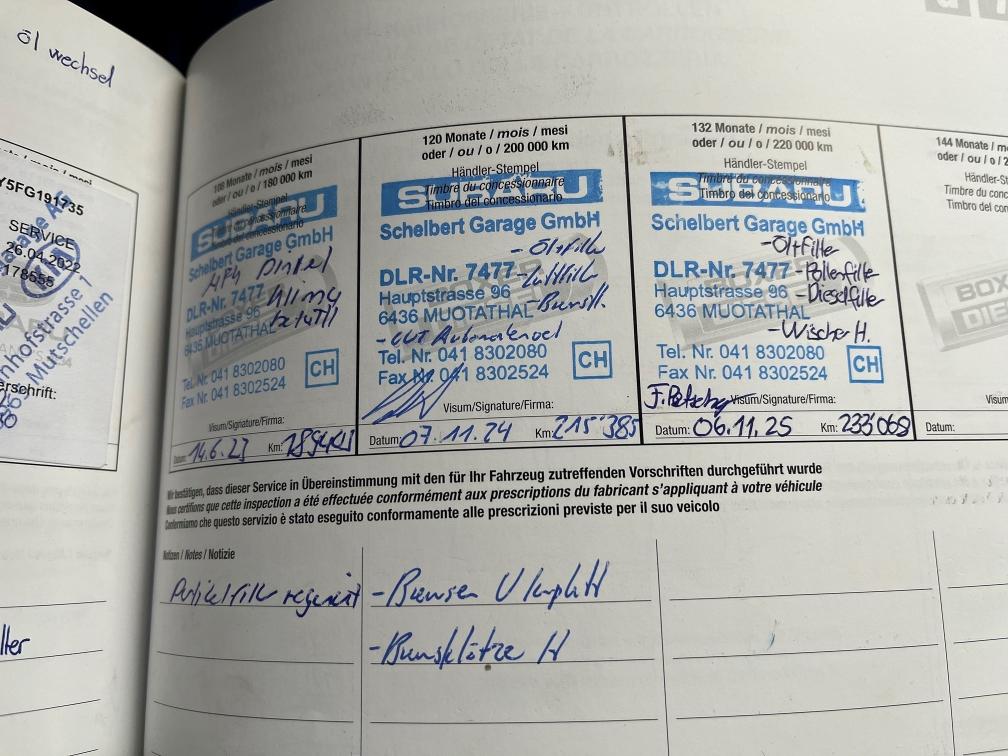 öl wechsel
Y5FG191735
SERVICE
26.04.2022
178555
Mutschellen
108 Monate / mois / mesi
oder / ou / o / 180 000 km
Händler-Stempel
Timbre du concessionnaire
Timbro del concessionario
SUBARU
Schelbert Garage GmbH
DLR-Nr. 7477
Hauptstrasse 96
6436 MUOTATHAL
Tel. Nr. 041 8302080
Fax Nr. 041 8302524
CH
Visum/Signature/Firma:
Datum: 14.6.23 Km:
120 Monate / mois / mesi
oder / ou / o / 200 000 km
Händler-Stempel
Timbre du concessionnaire
Timbro del concessionario
SUBARU
Schelbert Garage GmbH
- Ölfilter
DLR-Nr. 7477 - Luftfilter
Hauptstrasse 96
6436 MUOTATHAL
Tel. Nr. 041 8302080
Fax Nr. 041 8302524
CH
Visum/Signature/Firma:
Datum: 07.11.24 Km: 215'385
132 Monate / mois / mesi
oder / ou / o / 220 000 km
Händler-Stempel
Timbre du concessionnaire
Timbro del concessionario
SUBARU
Schelbert Garage GmbH
- Ölfilter
DLR-Nr. 7477 - Pollenfilter
Hauptstrasse 96 - Dieselfilter
6436 MUOTATHAL
- Wischer H.
Tel. Nr. 041 8302080
Fax Nr. 041 8302524
CH
Visum/Signature/Firma:
Datum: 06.11.25 Km: 233'068
144 Monate / m
oder / ou / o / 2
Händler-St
Timbre du co
Timbro del con
BOX
DIE
Visum
Datum:
Wir bestätigen, dass dieser Service in Übereinstimmung mit den für Ihr Fahrzeug zutreffenden Vorschriften durchgeführt wurde
Nous certifions que cette inspection a été effectuée conformément aux prescriptions du fabricant s'appliquant à votre véhicule
Confermiamo che questo servizio è stato eseguito conformamente alle prescrizioni previste per il suo veicolo
Notizen / Notes / Notizie
- Bremsen V komplett
- Bremsklötze H